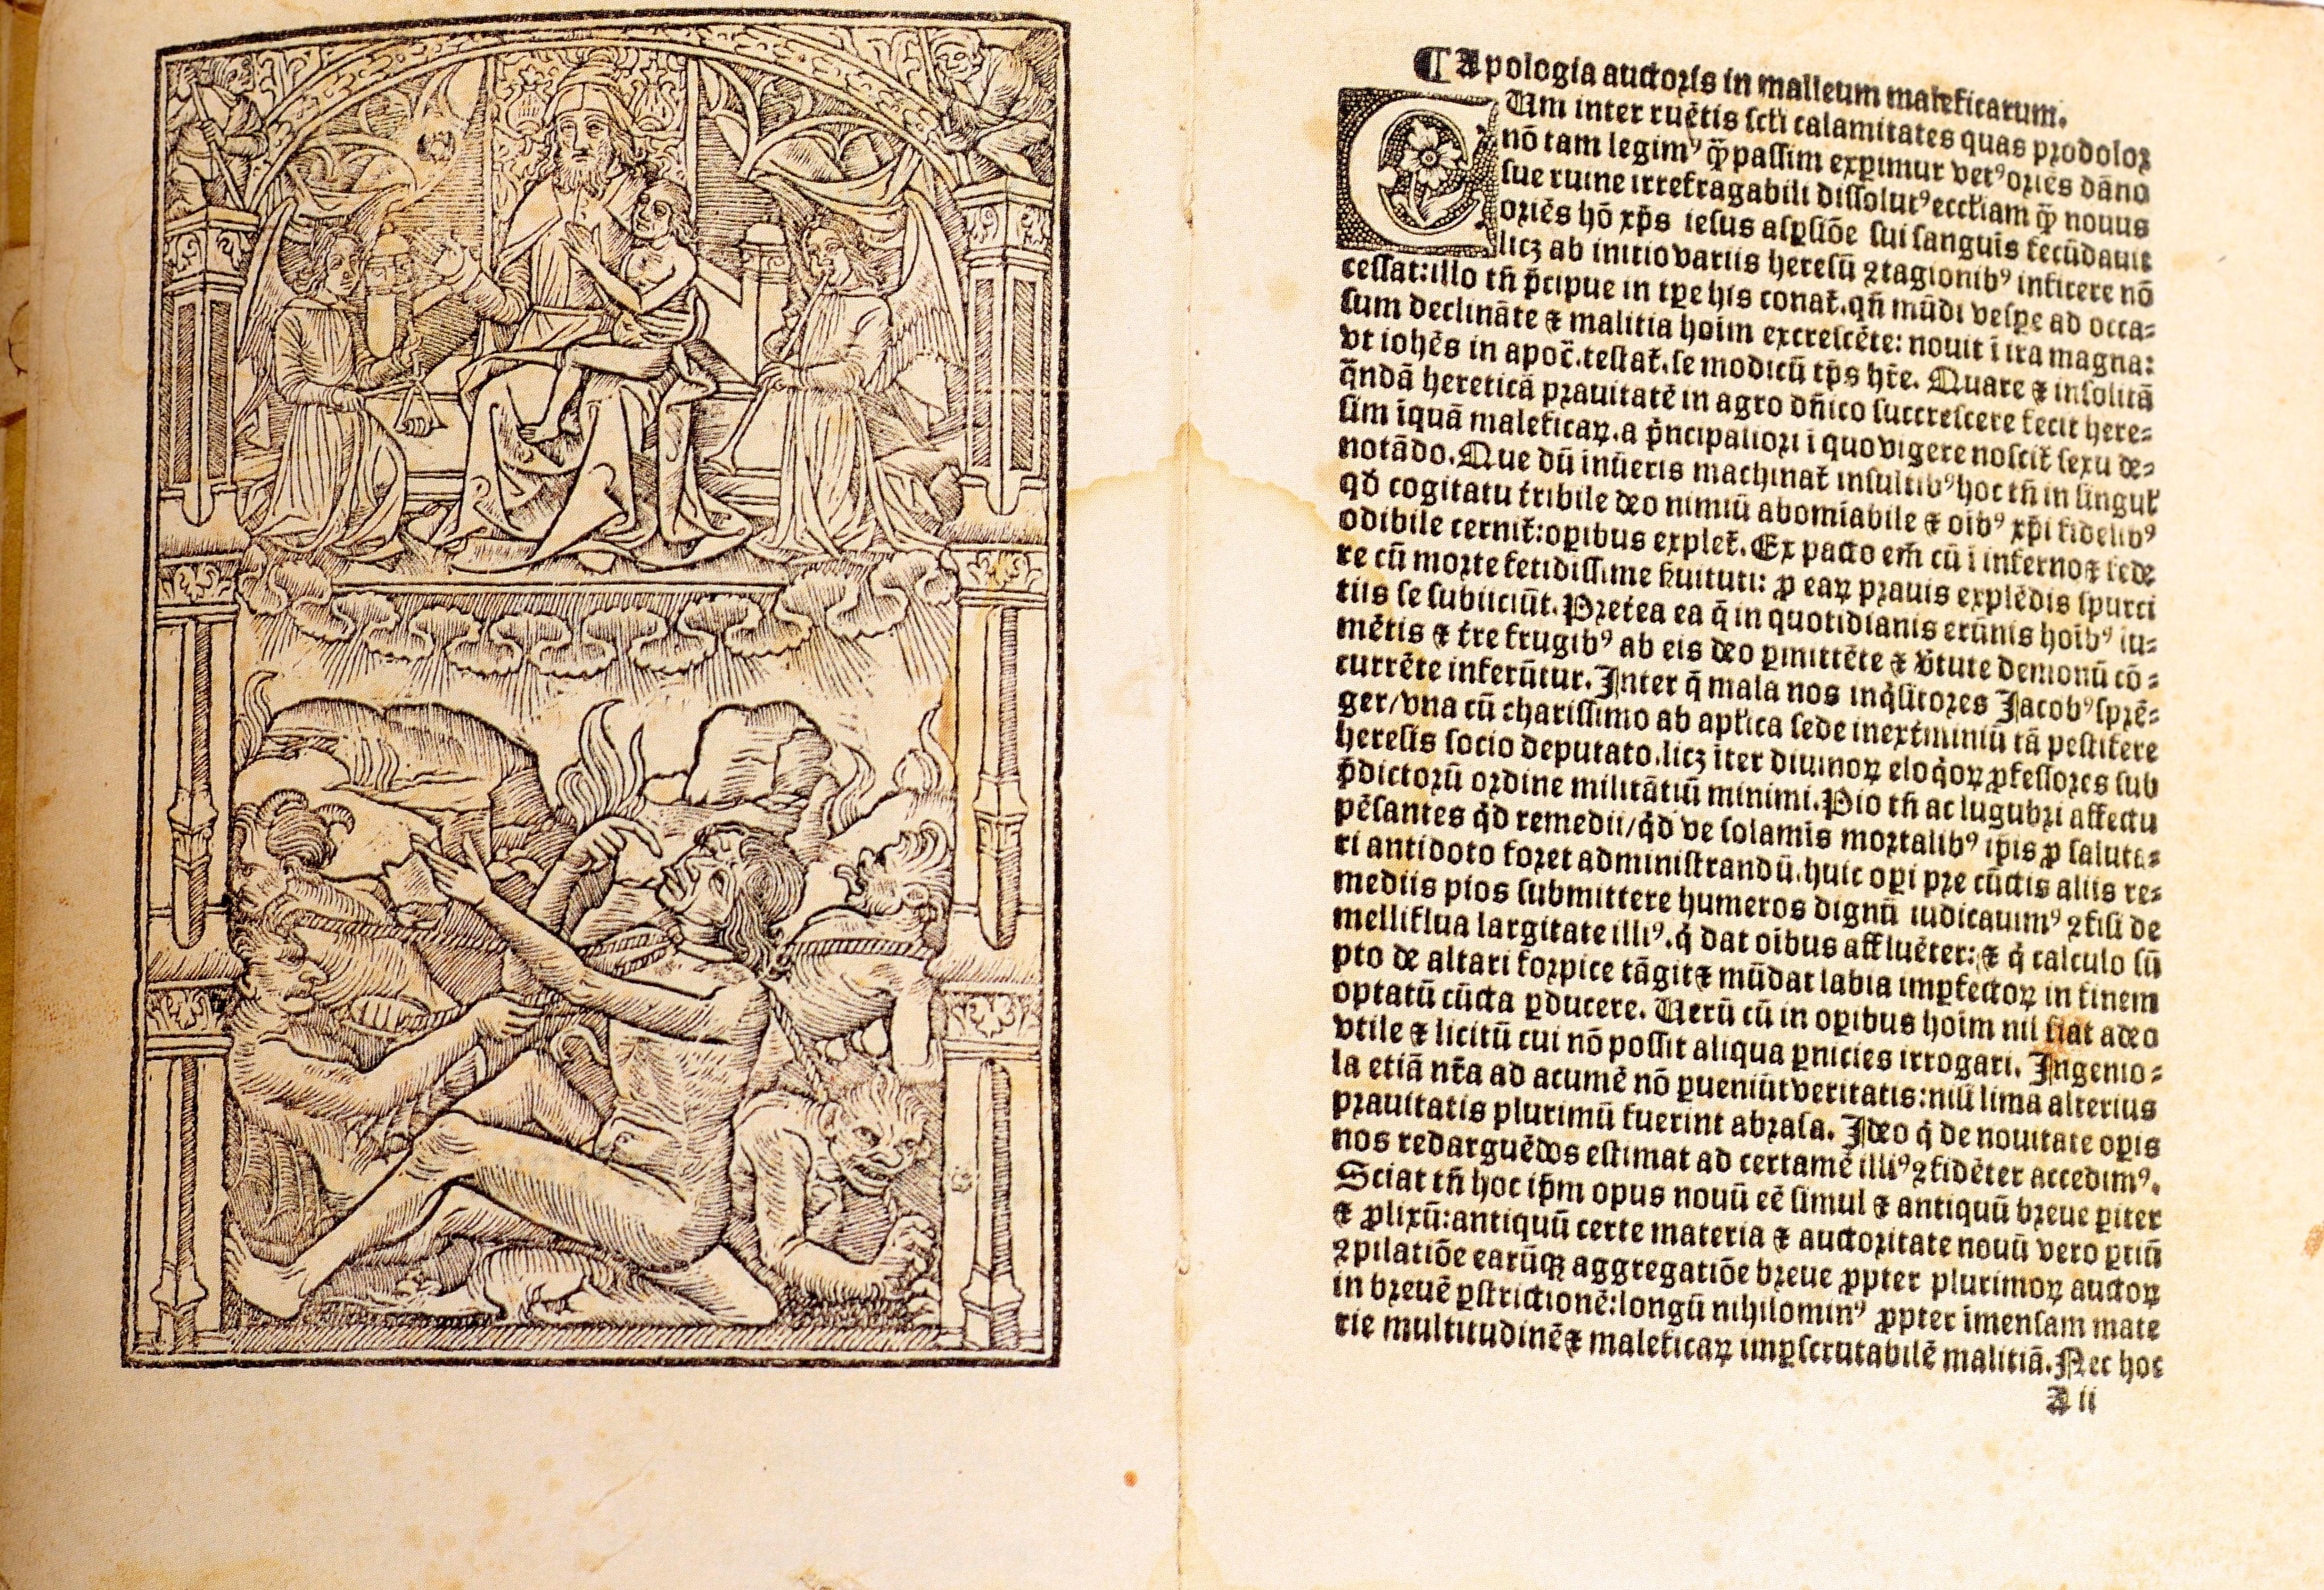 ¶ Apologia auctoris in malleum maleficarum.
CUm inter ruētis scłi calamitates quas prodolor
nō tam legimꝰ qͫ̄ passim exꝑimur vetꝰ oriēs dāno
sue ruine irrefragabili dissolutꝰ eccłiam qͫ̄ nouus
oriēs hō xp̄s iesus aspsiōe sui sanguīs fecūdauit
licꝫ ab initio variis heresū ꝯtagionibꝰ inficere nō
cessat: illo tn̄ p̄cipue in tꝑe his conat̄. qn̄ mūdi vespe ad occa-
sum declināte ⁊ malitia hoīm excrescēte: nouit ī ira magna:
vt iohēs in apoc̄. testat̄. se modicū tp̄s hr̄e. Quare ⁊ insolitā
q̄ndā hereticā prauitatē in agro dn̄ico succrescere fecit here-
sim īquā maleficaꝝ. a p̄ncipaliori ī quo vigere noscit̄ sexu de-
notādo. Que dū inūeris machinat̄ insultibꝰ hoc tn̄ in singuł
qd̄ cogitatu t̄ribile deo nimiū abomīabile ⁊ oībꝰ xp̄i fidelibꝰ
odibile cernit̄: oꝑibus explet̄. Ex pacto em̄ cū ī inferno ⁊ fede
re cū morte fetidissime ẜuituti: ꝓ eaꝝ prauis explēdis spurci
tiis se subiiciūt. Pretea ea q̄ in quotidianis erūnis hoībꝰ iu-
mētis ⁊ t̄re frugibꝰ ab eis deo ꝑmittēte ⁊ v̄tute demonū cō-
currēte inferūtur. Inter q̄ mala nos inq̇sitores Jacobꝰ sprē-
ger/ vna cū charissimo ab apłica sede in extminiū tā pestifere
heresis socio deputato. licꝫ īter diuinoꝝ eloq̇oꝝ ꝓfessores sub
p̄dictorū ordine militātiū minimi. Pio tn̄ ac lugubri affectu
pēsantes q̇d remedii/ q̇d ve solamīs mortalibꝰ ip̄is ꝓ saluta-
ri antidoto foret administrandū. huic oꝑi pre cūctis aliis re-
mediis pios submittere humeros dignū iudicauimꝰ ꝯfisi de
melliflua largitate illiꝰ. q̇ dat oībus affluēter: ⁊ q̇ calculo sū
pto de altari forpice tāgit ⁊ mūdat labia imꝑfectoꝝ in finem
optatū cūcta ꝑducere. Uerū cū in oꝑibus hoīm nil fiat adeo
vtile ⁊ licitū cui nō possit aliqua ꝑnicies irrogari. Ingenio-
la etiā nr̄a ad acumē nō ꝑueniūt veritatis: nisi lima alterius
prauitatis plurimū fuerint abrasa. Ideo q̇ de nouitate oꝑis
nos redarguēdos estimat ad certamē illiꝰ ꝯfidēter accedimꝰ.
Sciat tn̄ hoc ip̄m opus nouū eē simul ⁊ antiquū breue ꝑiter
⁊ ꝓlixū: antiquū certe materia ⁊ auctoritate nouū vero ꝑtiū
ꝯpilatiōe earūqꝫ aggregatiōe breue ꝓpter plurimoꝝ auctoꝝ
in breuē ꝑstrictionē: longū nihilominꝰ ꝓpter īmensam mate
rie multitudinē ⁊ maleficaꝝ imꝑscrutabilē malitiā. Nec hoc
A ii